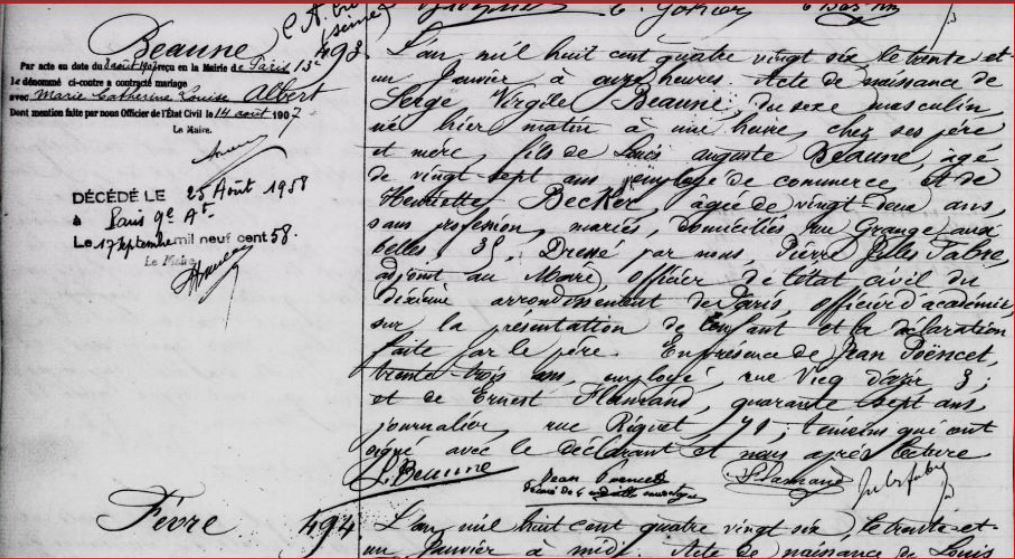 Beaune
493.
Par acte en date du 8 août 1907 reçu en la Mairie de Paris 13e
le dénommé ci-contre a contracté mariage
avec Marie Catherine Louise Albert
Dont mention faite par nous Officier de l'État Civil le 14 août 1907
Le Maire.
DÉCÉDÉ LE 25 Août 1958
à Paris 9e At
Le 17 septembre mil neuf cent 58.
Le Maire
L'an mil huit cent quatre vingt six le trente et-
un Janvier à onze heures. Acte de naissance de
Serge Virgile Beaune, du sexe masculin
né hier matin à une heure, chez ses père
et mère, fils de Louis auguste Beaune, âgé
de vingt sept ans employé de commerce, et de
Henriette Becker, âgée de vingt-deux ans,
sans profession, mariés, domiciliés rue Grange aux
belles 35. Dressé par nous, Pierre Jules Fabre,
adjoint au Maire, officier de l'état civil du
dixième arrondissement de Paris, officier d'académie,
sur la présentation de l'enfant et la déclaration
faite par le père. En présence de Jean Poëncet,
trente-trois ans, employé, rue Vicq d'azir 3;
et de Ernest Flamand, quarante sept ans
journalier, rue Riquet 71; témoins qui ont
signé avec le déclarant et nous après lecture
L. Beaune Jean Flamand Jules Fabre
Fèvre
494.
L'an mil huit cent quatre vingt six, le trente-et-
un Janvier à midi. Acte de naissance de Louis